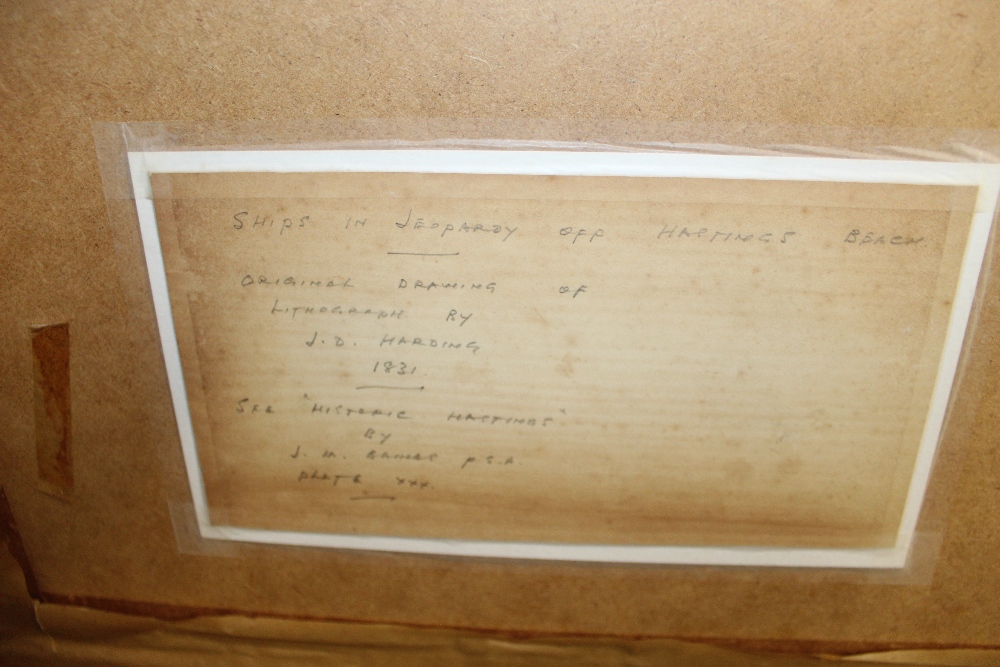 SHIPS IN JEOPARDY OFF HASTINGS BEACH
ORIGINAL DRAWING OF
LITHOGRAPH BY
J. D. HARDING
1831.
SEE "HISTORIC HASTINGS"
BY
J. M. BAINES F.S.A.
PLATE XXX.